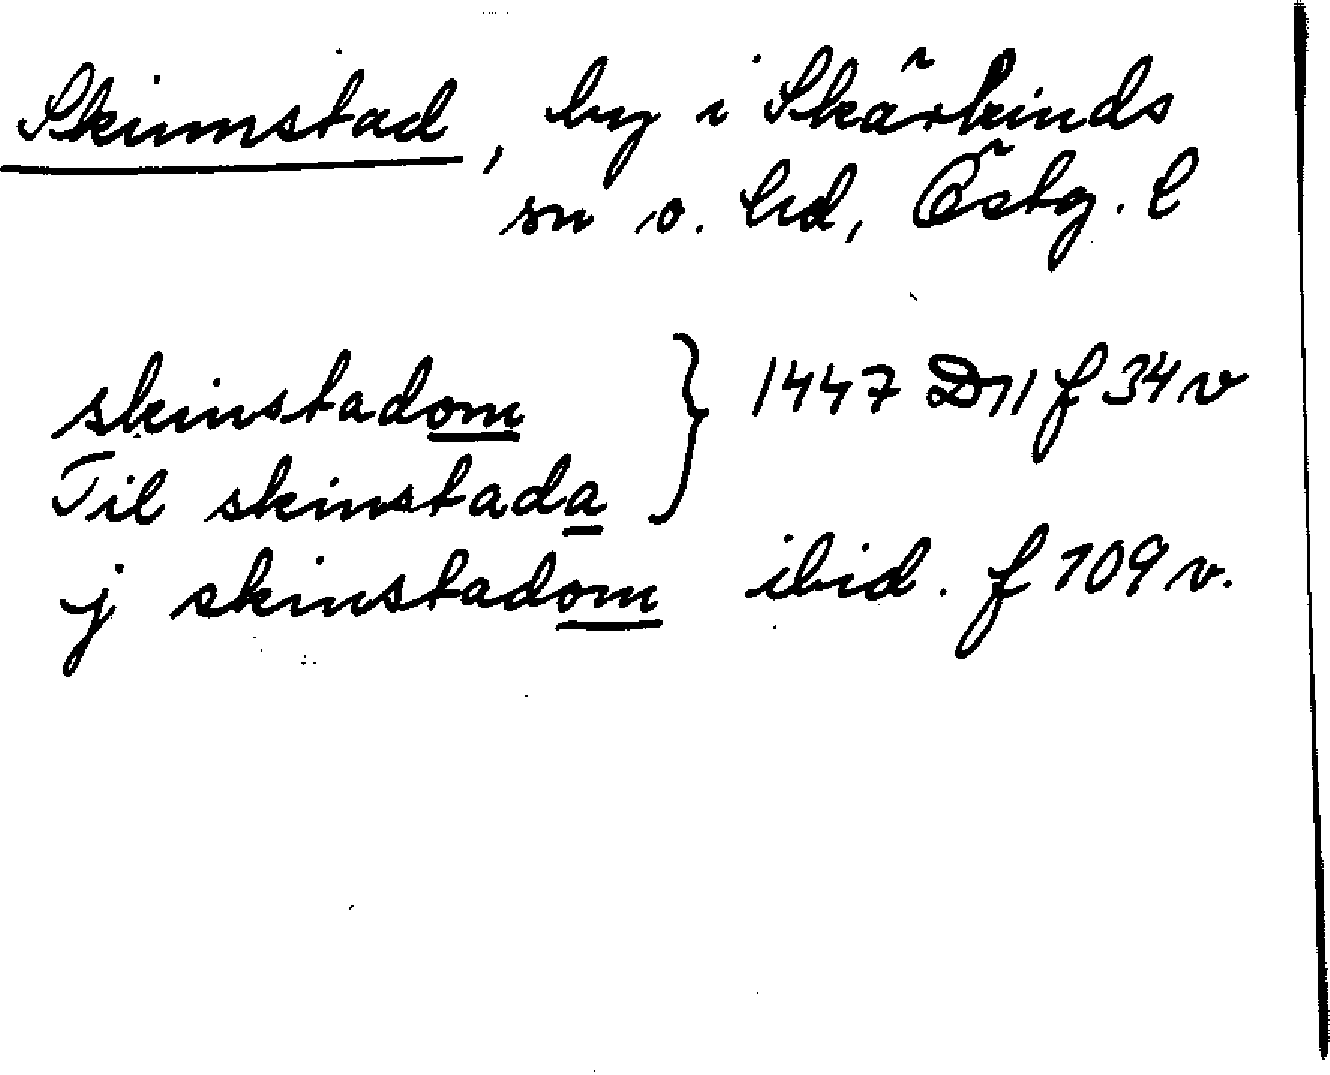 Skimstad, by i Skärkinds
sn o. hd, Östg. l
skinstadom } 1447 D11 f 34 v
Til skinstada
j skinstadom ibid. f 109 v.